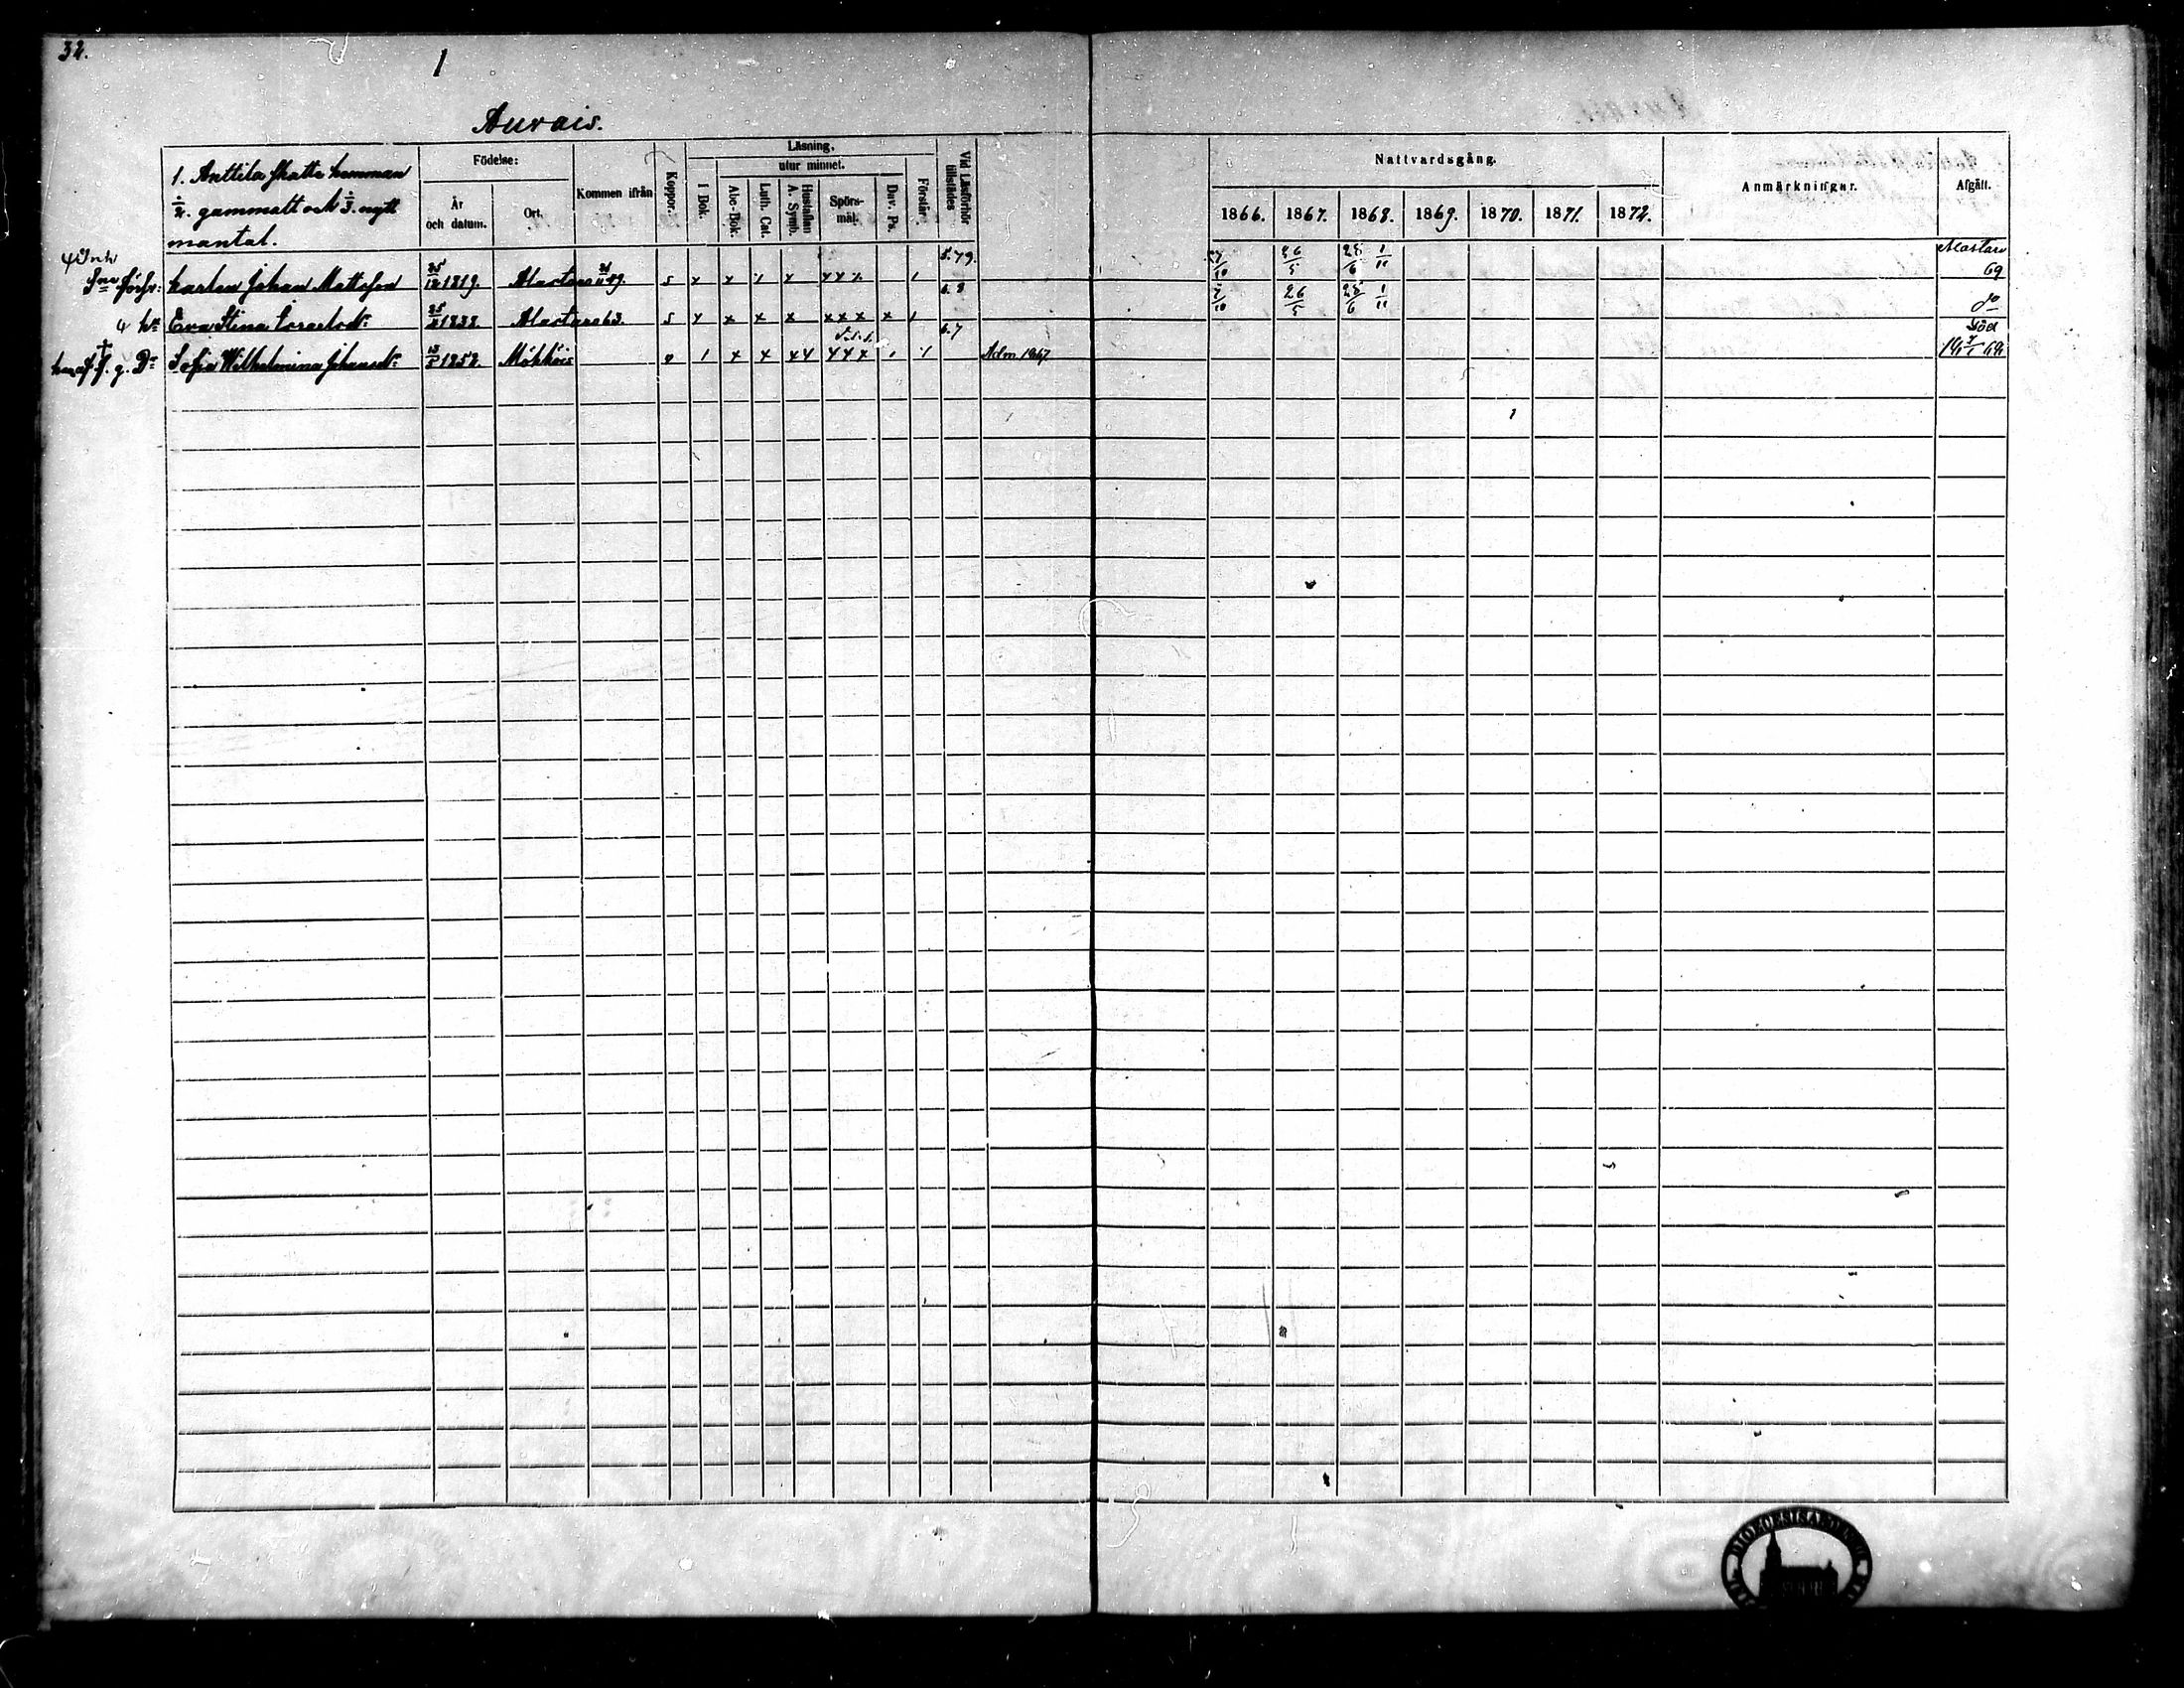 32.
1
Aurais.
1. Anttila Skatte hemman
1/2. gammalt och 1/3. nytt
mantal.
Födelse:
År och datum.
Ort.
Kommen ifrån
Koppor.
Läsning.
I Bok.
utur minnet.
Abc-Bok.
Luth. Cat.
Hustaflan A. Symb.
Spörsmål.
Dav. Ps.
Förstår.
Vid Läsförhör tillstädes
Nattvardsgång.
1866. 1867. 1868. 1869. 1870. 1871. 1872.
Anmärkningar.
Afgått.
Karlen Johan Mattsson 25/12 1819. Alastaro 49. s x x x x x x 5.79. 7/10 26/5 28/6 1/11 Alastaro 69
Eva Stina 25 1838. Alastaro 63. s x x x x x x x x 6.8 7/10 26/5 28/6 1/11 do
D:r Sofia Wilhelmina Johansd:r 1852. Mökköis 1 x x x x x x x 6.7 Adm. 1867. Död